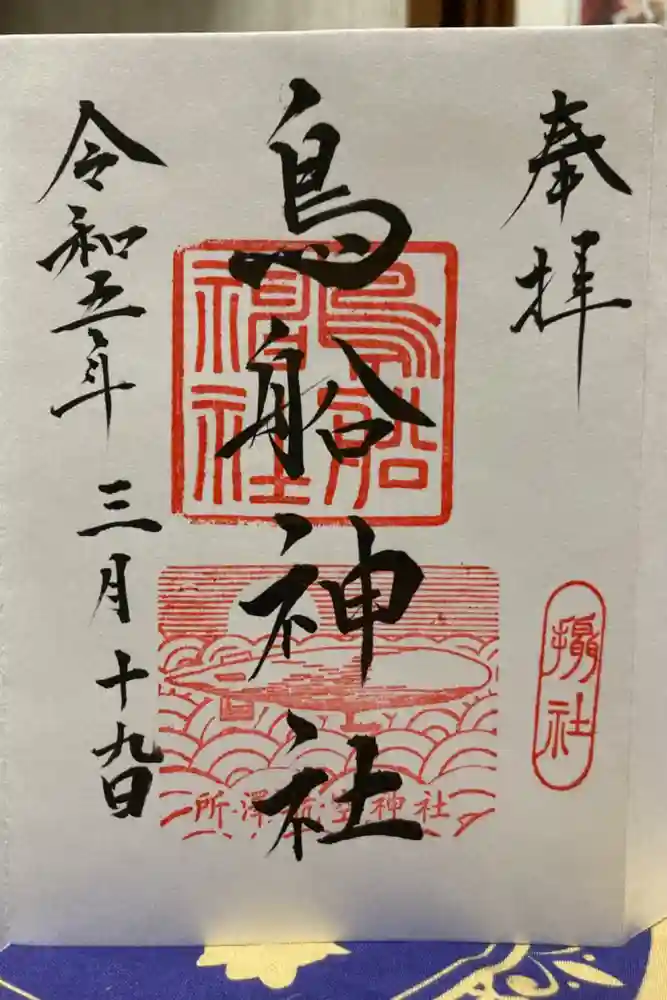 奉拝
摂社
鳥船神社
鳥船神社
所澤航空神社
令和五年三月十九日